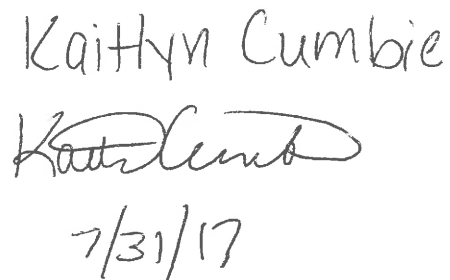 Kaitlyn Cumbie
Kaitlyn Cumbie
7/31/17